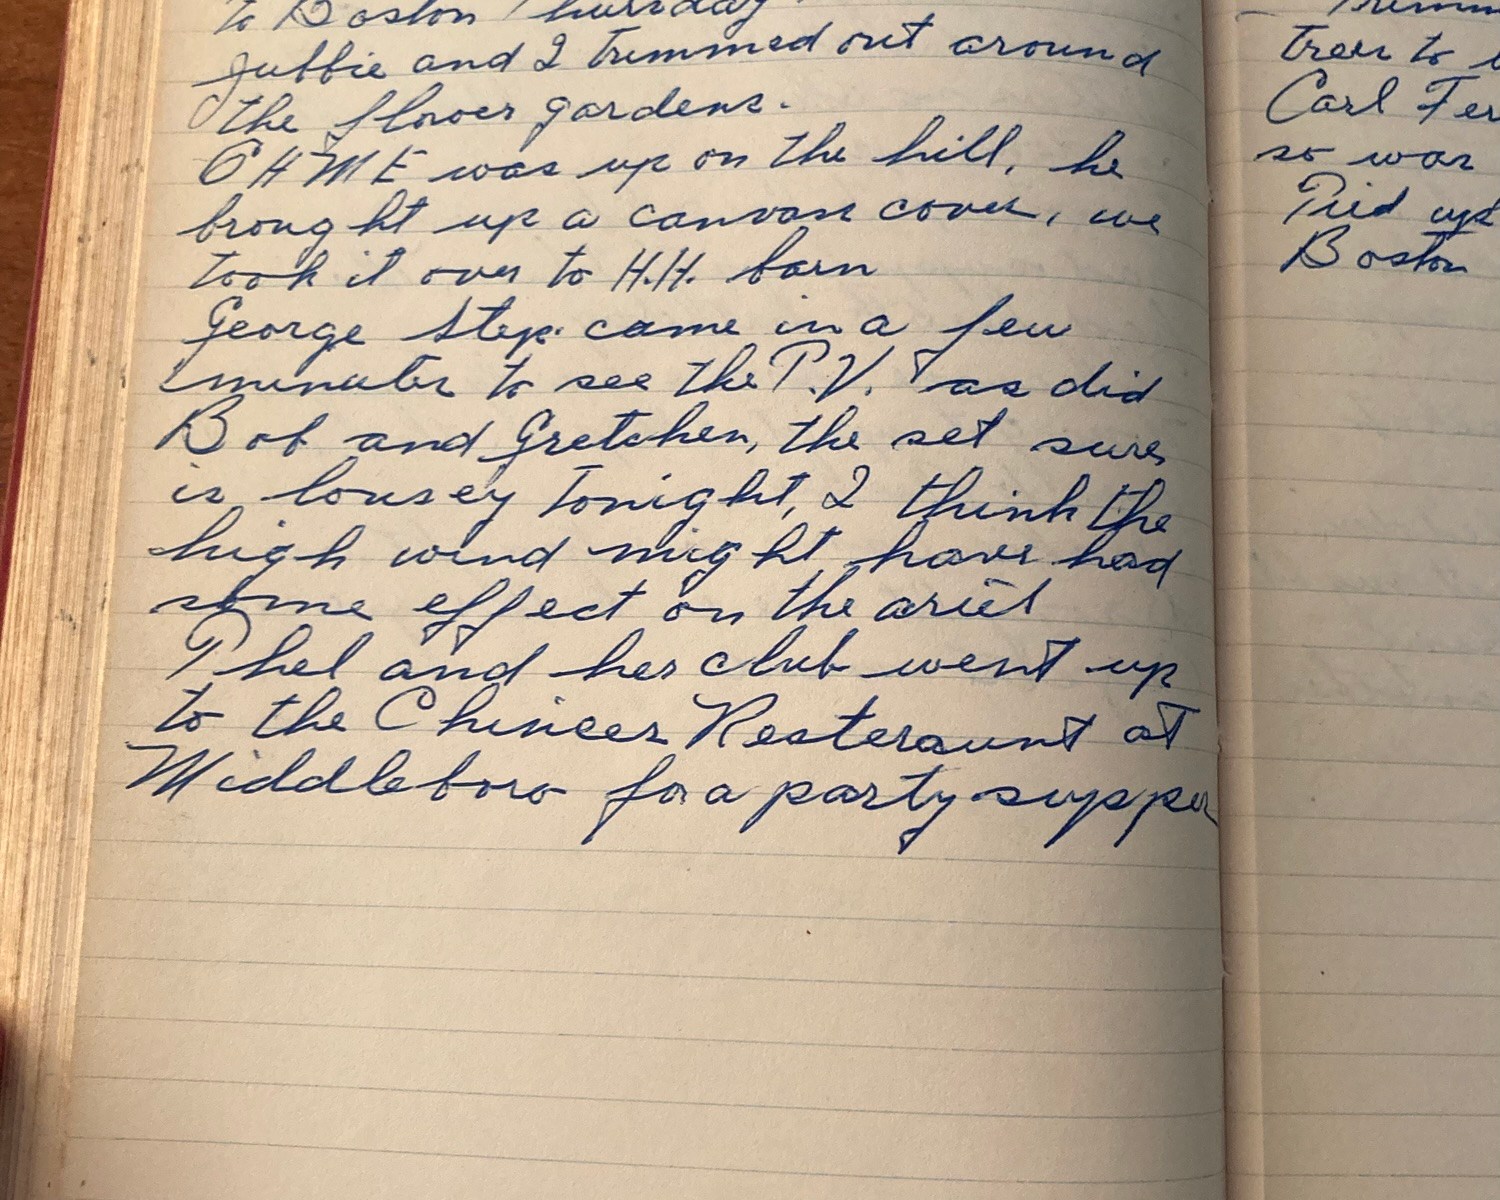 to Boston Thursday
Jubbie and I trimmed out around
the flower gardens.
CHME was up on the hill, he
brought up a canvass cover, we
took it over to H.H. barn
George Step. came in a few
minutes to see the T.V. as did
Bob and Gretchen, the set sure
is lousey tonight, I think the
high wind might have had
some effect on the ariel
Phel and her club went up
to the Chineese Resteraunt at
Middleboro for a party supper
trees to
Carl
so was
Tied up
Boston